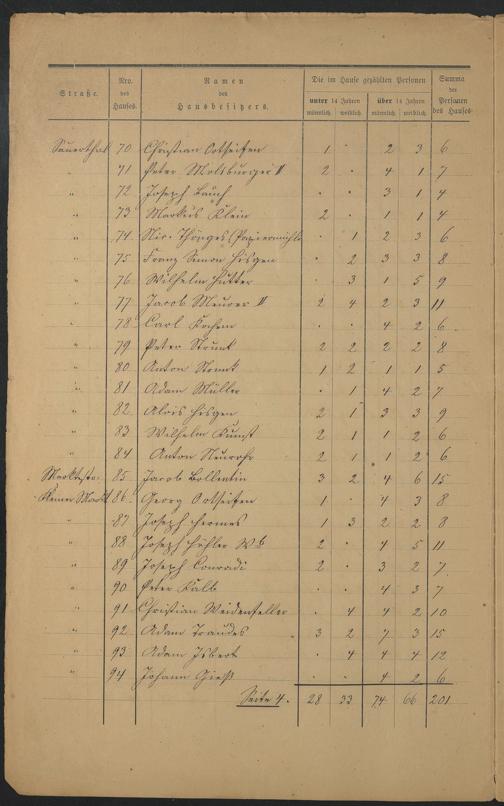 Straße.
Nro. des Hauses.
Namen des Hausbesitzers.
Die im Hause gezählten Personen
unter 14 Jahren
über 14 Jahren
männlich. weiblich. männlich. weiblich.
Summa der Personen des Hauses
Sauerthal 70 Christian Ortseifen 1 · 2 3 6
" 71 Peter Molsburger II 2 · 4 1 7
" 72 Joseph Bauch · · 3 1 4
" 73 Markus Klein 2 · 1 1 4
" 74 Nic. Thönges (Papiermühle · 1 2 3 6
" 75 Franz Simon Hisgen · 2 3 3 8
" 76 Wilhelm Hütter · 3 1 5 9
" 77 Jacob Meurer II 2 4 2 3 11
" 78 Carl Kochem · · 4 2 6
" 79 Peter Strunk 2 2 2 2 8
" 80 Anton Strunk 1 2 1 1 5
" 81 Adam Müller · 1 4 2 7
" 82 Alois Hisgen 2 1 3 3 9
" 83 Wilhelm Kunst 2 1 1 2 6
" 84 Anton Neuroth 2 1 1 2 6
85 Jacob Bollentin 3 2 4 6 15
Kleiner Markt 86 Georg Ortseifen 1 · 4 3 8
" 87 Joseph Hermes 1 3 2 2 8
" 88 Joseph Höhler Wb 2 · 4 5 11
" 89 Joseph Conradi 2 · 3 2 7
" 90 Peter Kalb · · 4 3 7
" 91 Christian Weidenfeller · 4 4 2 10
" 92 Adam Traudes 3 2 7 3 15
" 93 Adam Isbert · 4 4 4 12
" 94 Johann Gieß · · 4 2 6
Seite 4. 28 33 74 66 201